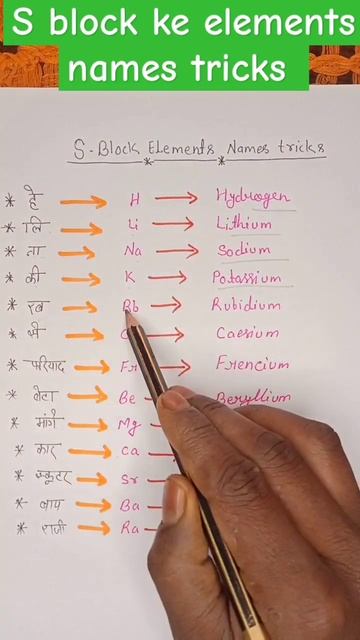 S block ke elements
names tricks
S-Block Elements Names tricks
* हे → H → Hydrogen
* लि → Li → Lithium
* ना → Na → Sodium
* की → K → Potassium
* रब → Rb → Rubidium
* से → → Caesium
* फरियाद → Fr → Frencium
* बेटा → Be Beryllium
* मांगे → Mg
* कार → Ca
* स्कूटर → Sr
* बाप → Ba
* राजी → Ra